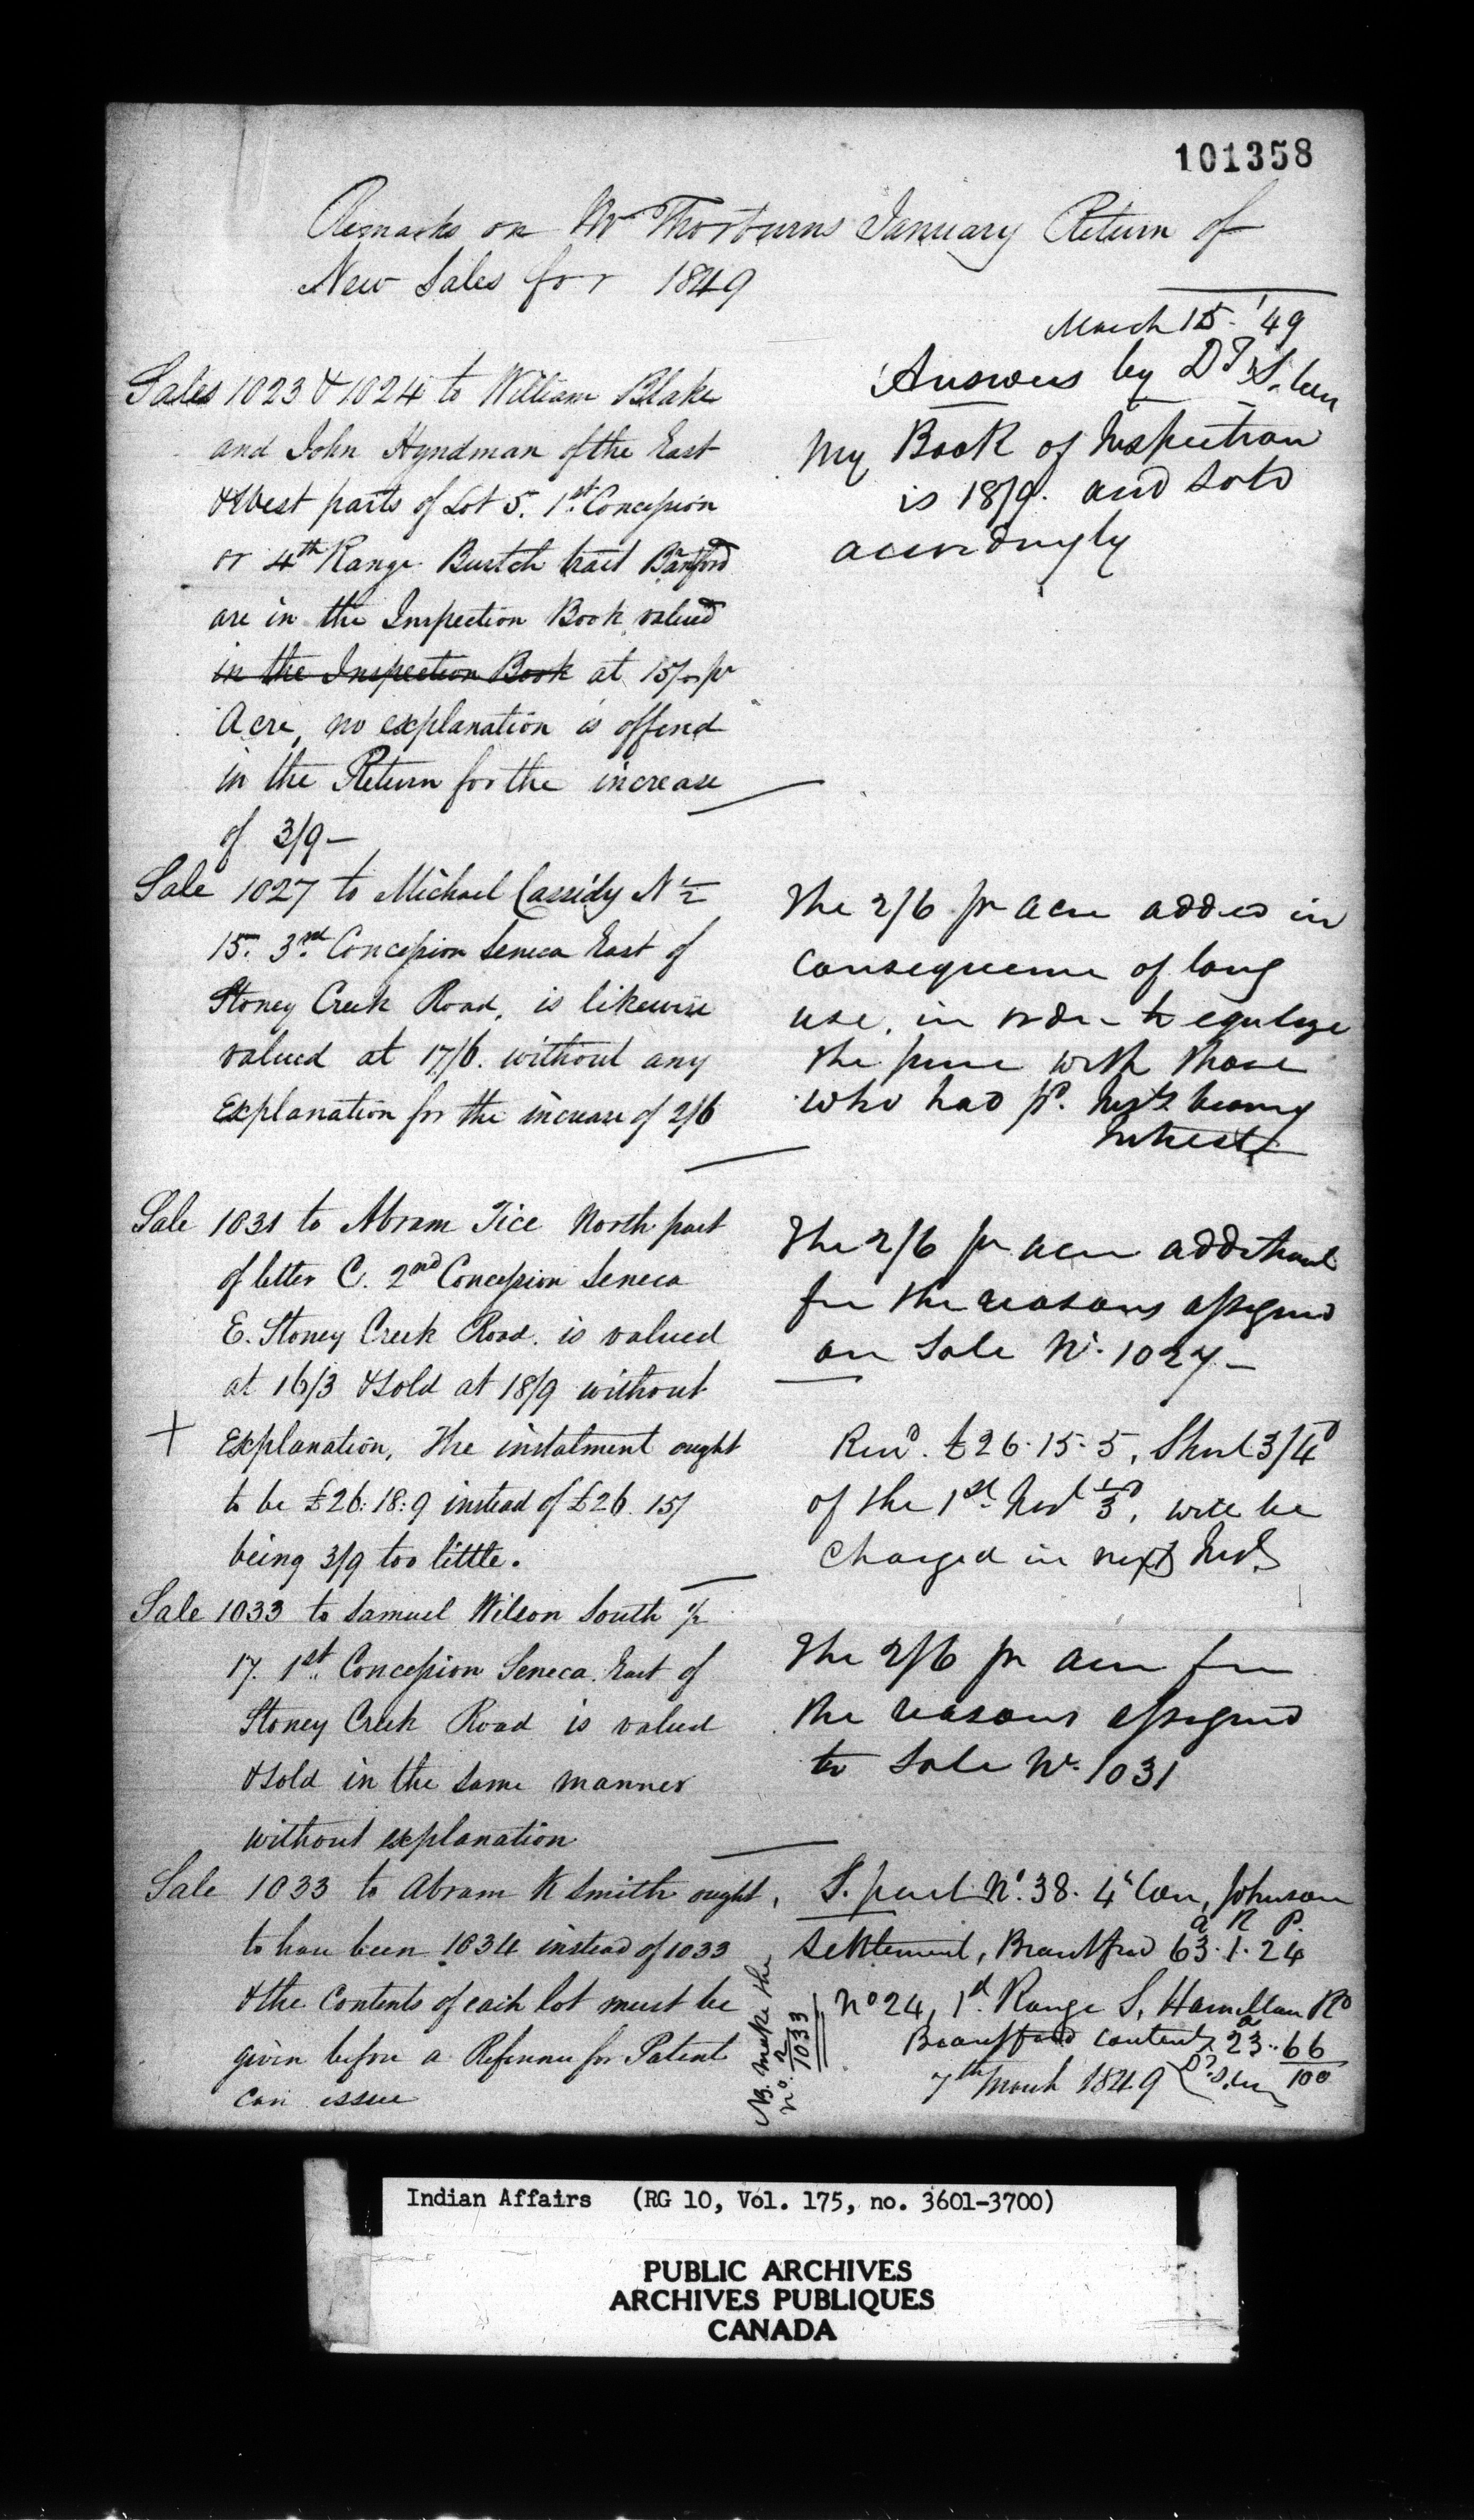 101358
Remarks on Mr Thorburns January Return of
New Sales for 1849
March 15 '49
Answers by D T
Sales 1023 & 1024 to William Blake
and John Hyndman of the East
& West parts of Lot 5. 1st Concession
or 4th Range Burtch tract Bantford
are in the Inspection Book valued
in the Inspection Book at 15/- pr
Acre, no explanation is offered
in the Return for the increase
of 3/9 —
My Book of Inspection
is 18/9. and sold
accordingly
Sale 1027 to Michael Cassidy N ½
15. 3rd Concession Seneca East of
Stoney Creek Road, is likewise
valued at 17/6. without any
Explanation for the increase of 2/6
The 2/6 pr acre added in
consequence of long
use, in order to
the price with those
who had pd. Inst bearing
Interest
Sale 1031 to Abram Tice North part
of letter C. 2nd Concession Seneca
E. Stoney Creek Road. is valued
at 16/3 & sold at 18/9 without
+ Explanation, The instalment ought
to be £26:18:9 instead of £26.15/
being 3/9 too little.
The 2/6 pr acre additional
for the reasons assigned
on Sale No. 1027 —
£26.15.5, Short 3/4d
of the 1st Inst ⅓d, will be
charged in next Inst
Sale 1033 to Samuel Wilson South ½
17. 1st Concession Seneca East of
Stoney Creek Road is valued
& sold in the same manner
without explanation
The 2/6 pr acre for
the reasons assigned
to Sale No. 1031
Sale 1033 to Abram K Smith ought
to have been 1034 instead of 1033
& the Contents of each lot must be
given before a Reference for Patent
can issue
S. part No. 38. 4th Con, Johnson
a R P.
Settlement, Brantford 63.1.24
No 24, 1st Range S, Hamilton Rd
Brantford contents 23a.. 66/100
7th March 1849
NB. make the
No. 2 1033
Indian Affairs (RG 10, Vol. 175, no. 3601-3700)
PUBLIC ARCHIVES
ARCHIVES PUBLIQUES
CANADA